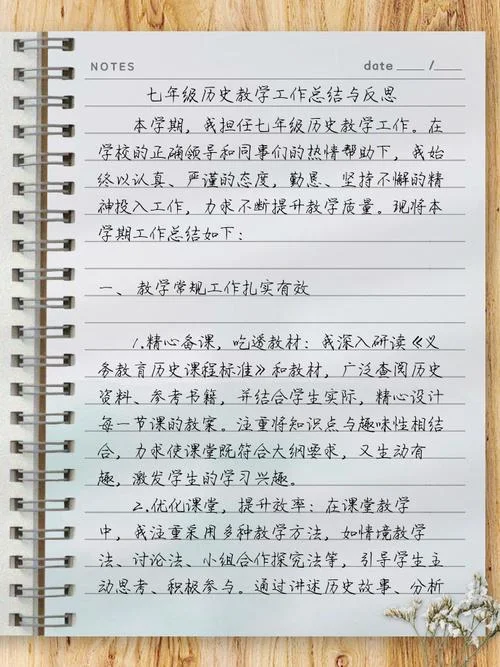 NOTES
date ____ /____
七年级历史教学工作总结与反思
本学期，我担任七年级历史教学工作。在
学校的正确领导和同事们的热情帮助下，我始
终以认真、严谨的态度，勤恳、坚持不懈的精
神投入工作，力求不断提升教学质量。现将本
学期工作总结如下：
一、教学常规工作扎实有效
1.精心备课，吃透教材：我深入研读《义
务教育历史课程标准》和教材，广泛查阅历史
资料、参考书籍，并结合学生实际，精心设计
每一节课的教案。注重将知识点与趣味性相结
合，力求使课堂既符合大纲要求，又生动有
趣，激发学生的学习兴趣。
2.优化课堂，提升效率：在课堂教学
中，我注重采用多种教学方法，如情境教学
法、讨论法、小组合作探究法等，引导学生主
动思考、积极参与。通过讲述历史故事、分析